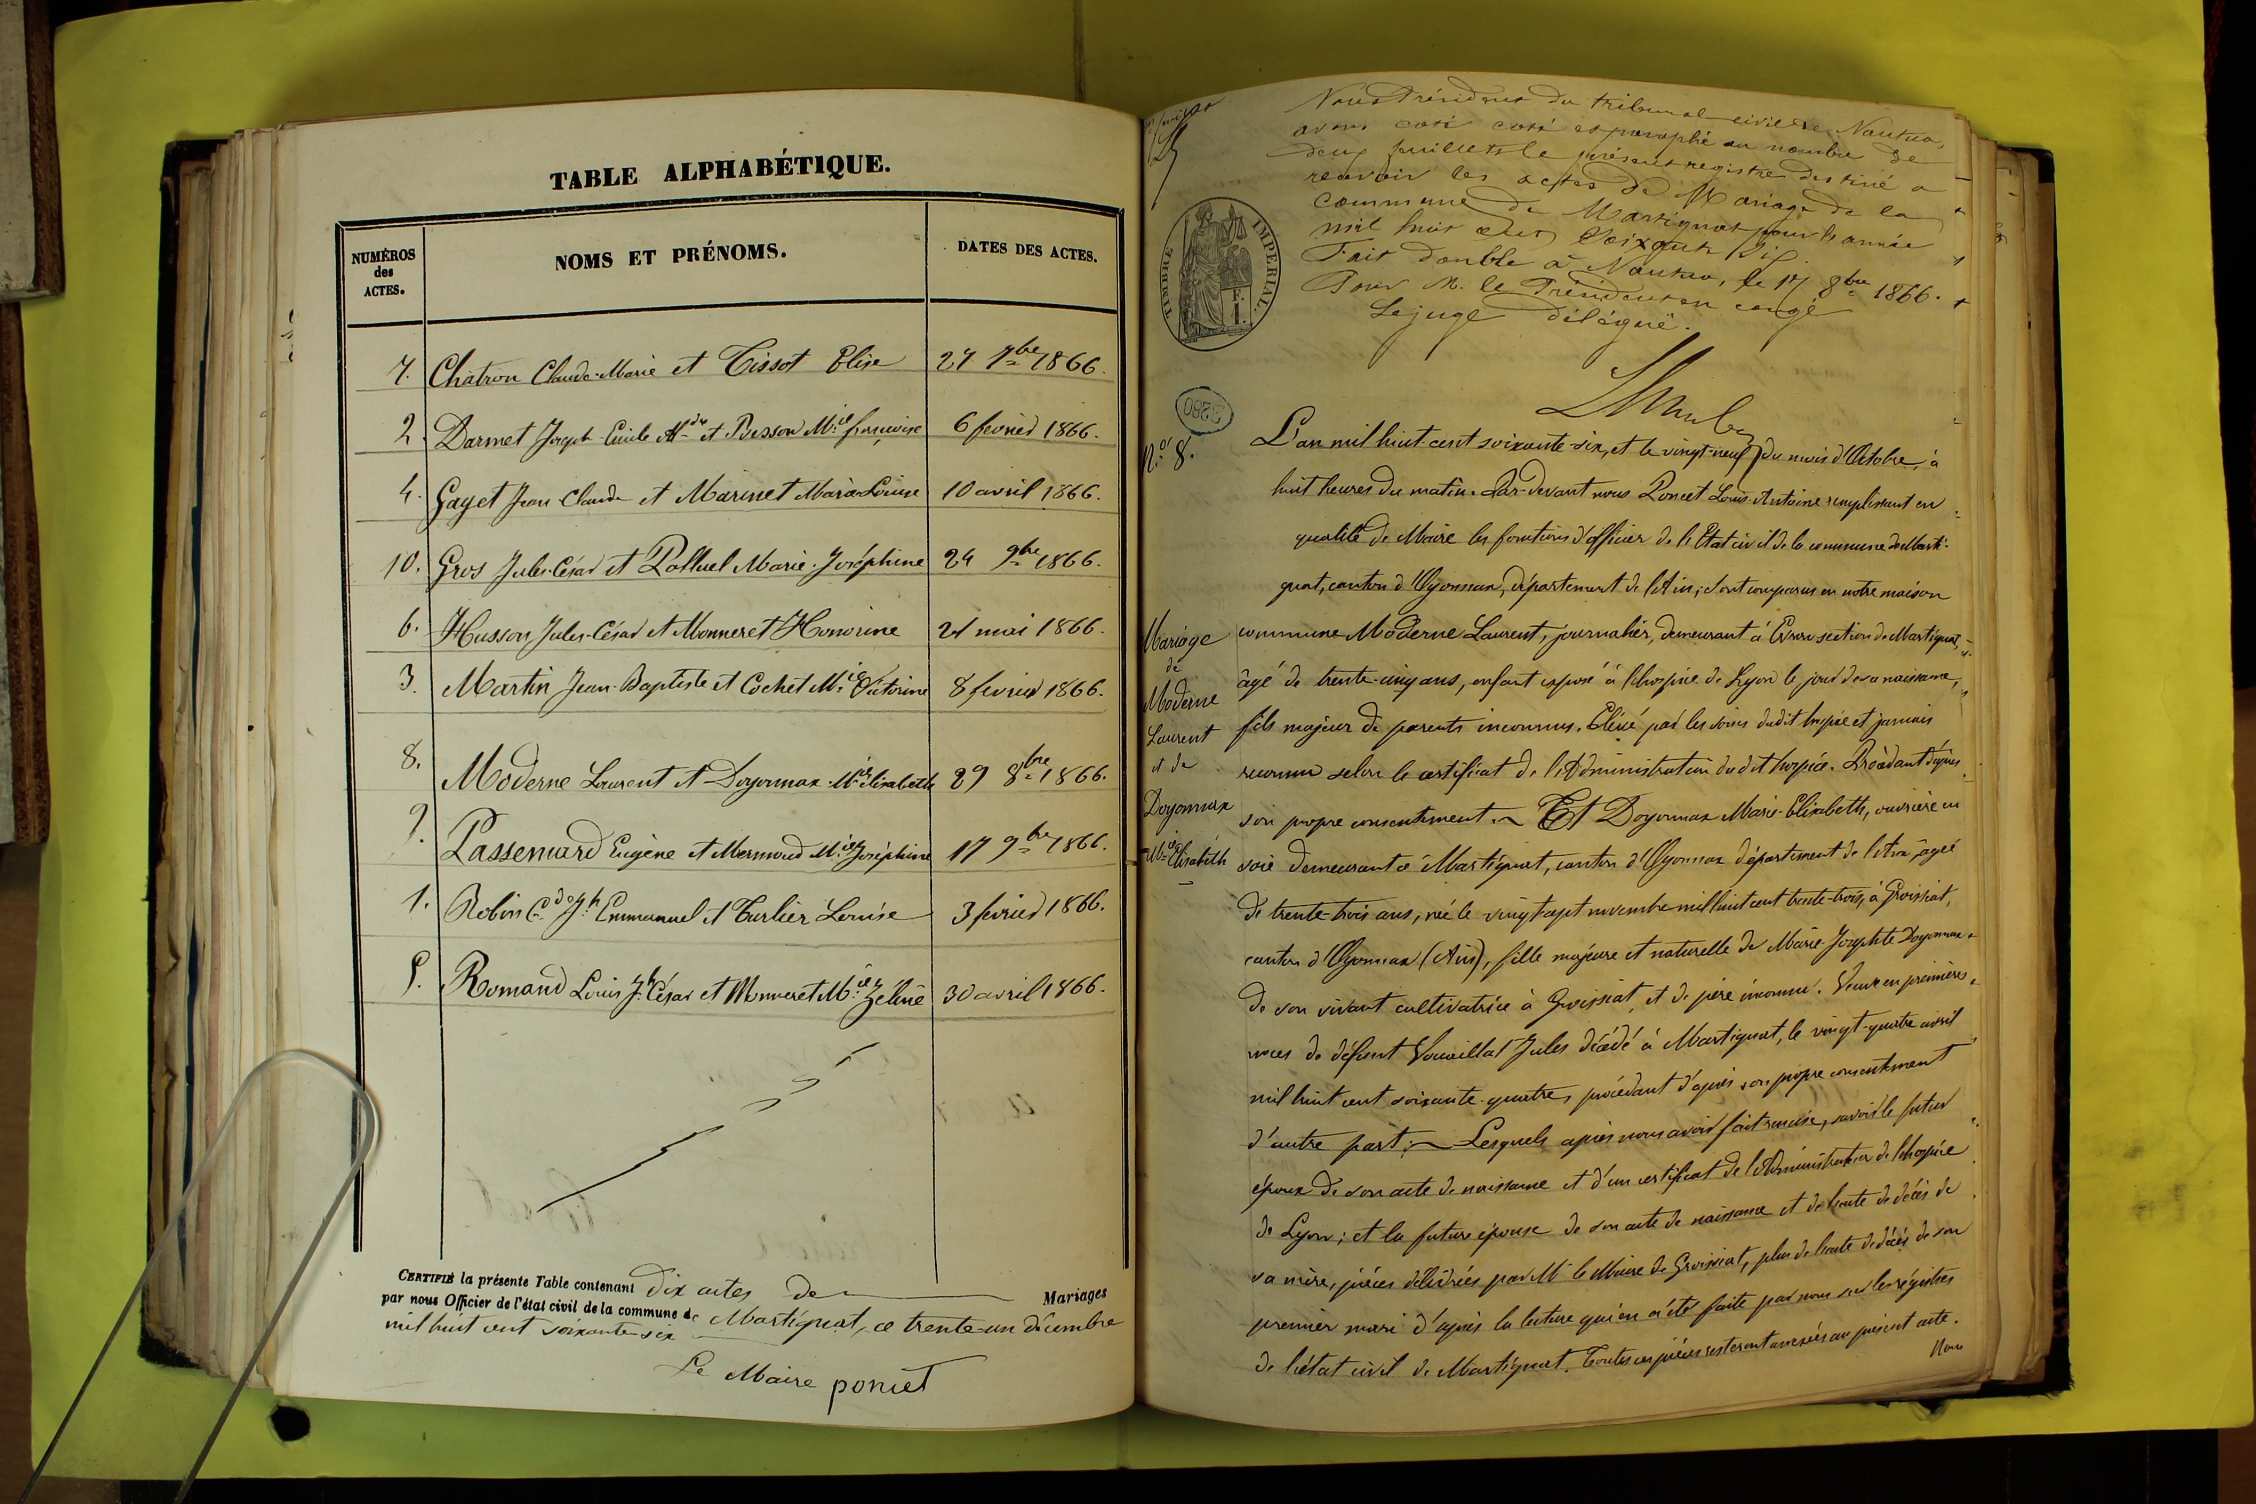 TABLE ALPHABÉTIQUE.
NUMÉROS des ACTES.
NOMS ET PRÉNOMS.
DATES DES ACTES.
7. Chatron Claude-Marie et Tissot Elise 27 7bre 1866.
2. Darmet Joseph Emile et Besson Mie françoise 6 février 1866.
4. Gayet Jean-Claude et Marinet Marie-Louise 10 avril 1866.
10. Gros Jules-César et Palluel Marie-Joséphine 24 9bre 1866.
6. Husson Jules-César et Monneret Honorine 21 mai 1866.
3. Martin Jean-Baptiste et Cochet Mie Victorine 8 février 1866.
8. Moderne Laurent et Doyonnax Mie élisabeth 29 8bre 1866.
9. Passemard Eugène et Mermoud Mie Joséphine 17 9bre 1866.
1. Robin Cde Jh Emmanuel et Turlier Louise 3 février 1866.
5. Romand Louis Jh César et Monneret Mie Zéline 30 avril 1866.
CERTIFIÉ la présente Table contenant dix actes de Mariages
par nous Officier de l'état civil de la commune de Martignat, ce trente-un décembre
mil huit cent soixante-six
Le Maire poncet
Nous Président du tribunal civil de Nantua,
avons coté et paraphé au nombre de
deux feuillets le présent registre destiné a
recevoir les actes de Mariage de la
commune de Martignat pour l'année
mil huit cent soixante six.
Fait double à Nantua, le 17 8bre 1866.
Pour M. le Président en congé
Le juge délégué.
TIMBRE IMPERIAL.
3280
No 8.
L'an mil huit-cent soixante-six, et le vingt-neuf du mois d'Octobre, à
huit heures du matin. Par-devant nous Poncet Louis-Antoine remplissant en
qualité de Maire les fonctions d'officier de l'Etat civil de la commune de Marti-
gnat, canton d'Oyonnax, département de l'Ain; sont comparus en notre maison
commune Moderne Laurent, journalier, demeurant à section de Martignat,
âgé de trente-cinq ans, enfant exposé à l'hospice de Lyon le jour de sa naissance,
fils majeur de parents inconnus. Elévé par les soins dudit hospice et jamais
reconnu selon le certificat de l'Administration du dit hospice. Procédant d'après
son propre consentement. Et Doyonnax Marie-Elisabeth, ouvrière en
soie demeurant à Martignat, canton d'Oyonnax département de l'Ain âgée
de trente-trois ans, née le vingt-sept novembre mil huit cent trente-trois, à Groissiat,
canton d'Oyonnax (Ain), fille majeure et naturelle de Marie-Josephte Doyonnax
de son vivant cultivatrice à Groissiat, et de père inconnu. Veuve en premières
noces de défunt Vouaillat Jules décédé à Martignat, le vingt-quatre avril
mil huit cent soixante-quatre, procédant d'après son propre consentement
d'autre part; Lesquels après nous avoir fait remise, savoir le futur
époux de son acte de naissance et d'un certificat de l'Administrateur de l'hospice
de Lyon; et la future épouse de son acte de naissance et de l'acte de décès de
sa mère, pièces délivrées par Mr le Maire de Groissiat, plus de l'acte de décès de son
premier mari d'après la lecture qui en a été faite par nous sur les régistres
de l'état civil de Martignat. Toutes ces pièces resteront annexées au présent acte.
Nous
Mariage
de
Moderne
Laurent
et de
Doyonnax
Mie Elisabeth